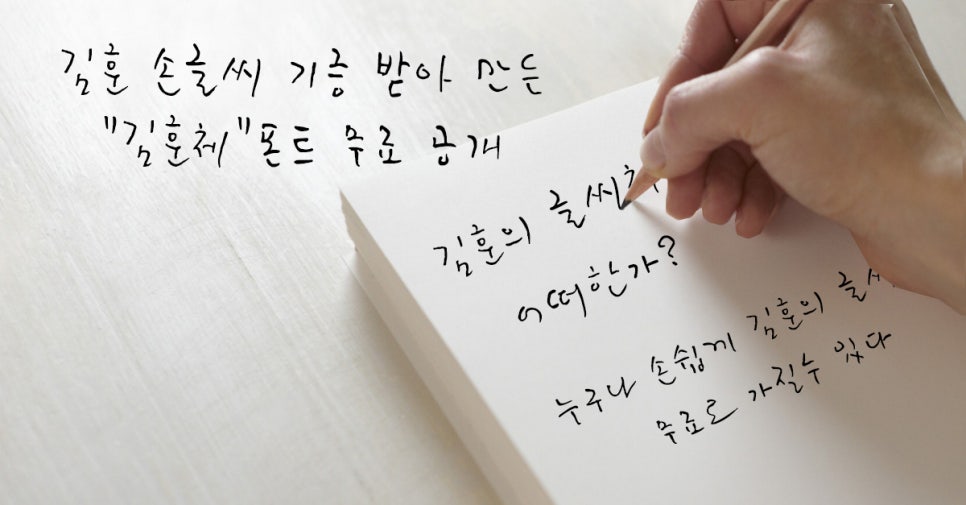 김훈 손글씨 기증 받아 만든
"김훈체"폰트 무료 공개
김훈의 글씨
어떠한가?
누구나 손쉽게 김훈의
무료로 가질수 있다